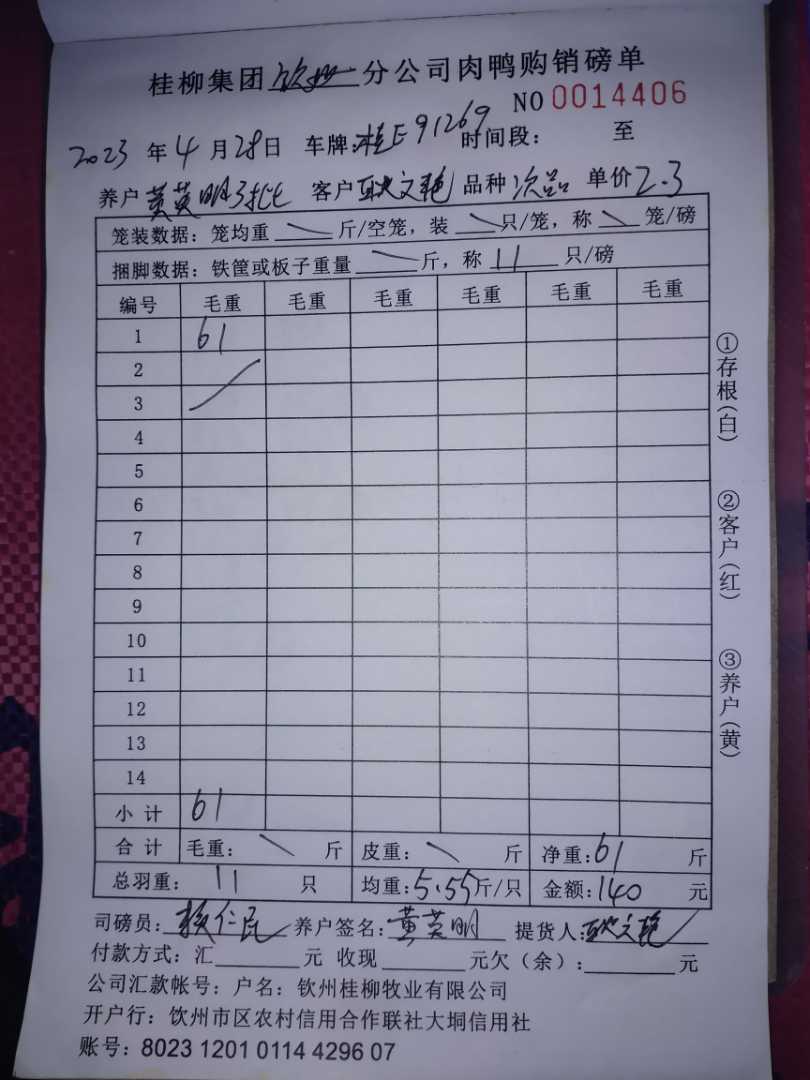 桂柳集团钦州分公司肉鸭购销磅单
NO 0014406
2023年4月28日 车牌:桂E91269 时间段: 至
养户黄英明3批 客户耿文艳 品种次品 单价2.3
笼装数据:笼均重 \ 斤/空笼,装 \ 只/笼,称 \ 笼/磅
捆脚数据:铁筐或板子重量 \ 斤,称 11 只/磅
编号 毛重 毛重 毛重 毛重 毛重 毛重
1 61
2
3
4
5
6
7
8
9
10
11
12
13
14
小计 61
合计 毛重: \ 斤 皮重: \ 斤 净重:61 斤
总羽重: 11 只 均重:5.55斤/只 金额:140 元
司磅员: 仁民 养户签名:黄英明 提货人:耿文艳
付款方式:汇 元 收现 元欠(余): 元
公司汇款帐号:户名:钦州桂柳牧业有限公司
开户行:饮州市区农村信用合作联社大垌信用社
账号:8023 1201 0114 4296 07
①存根(白)
②客户(红)
③养户(黄)